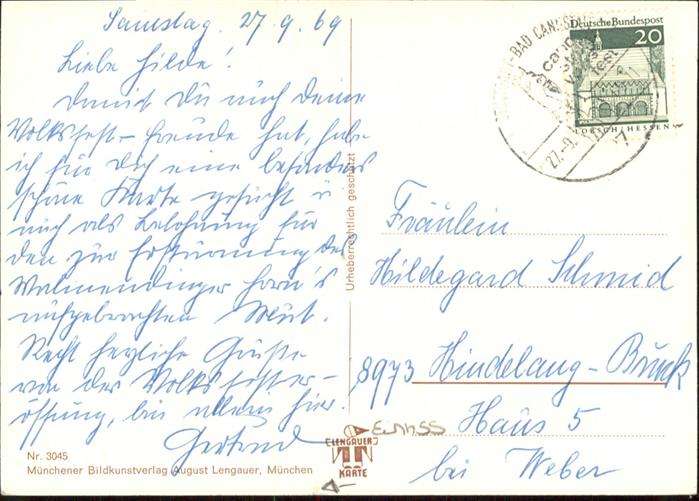 Samstag, 27.9.69
Liebe Hilde!
Damit Du auch Deine
Volksfest-Freude hast, habe
ich für Dich eine besonders
schöne Karte gesucht u.
auch als Belohnung für
den zur Erstürmung des
Walmendinger Horn's
aufgebrachten Mut.
Recht herzliche Grüße
von der Volksfester-
öffnung, bin allein hier.
Gertrud
Nr. 3045
Münchener Bildkunstverlag August Lengauer, München
Urheberrechtlich geschützt
LENGAUER
KARTE
BAD CANNSTATT
27.-9.
Deutsche Bundespost
20
LORSCH/HESSEN
Fräulein
Hildegard Schmid
8973 Hindelang-Bruck
Haus 5
bei Weber